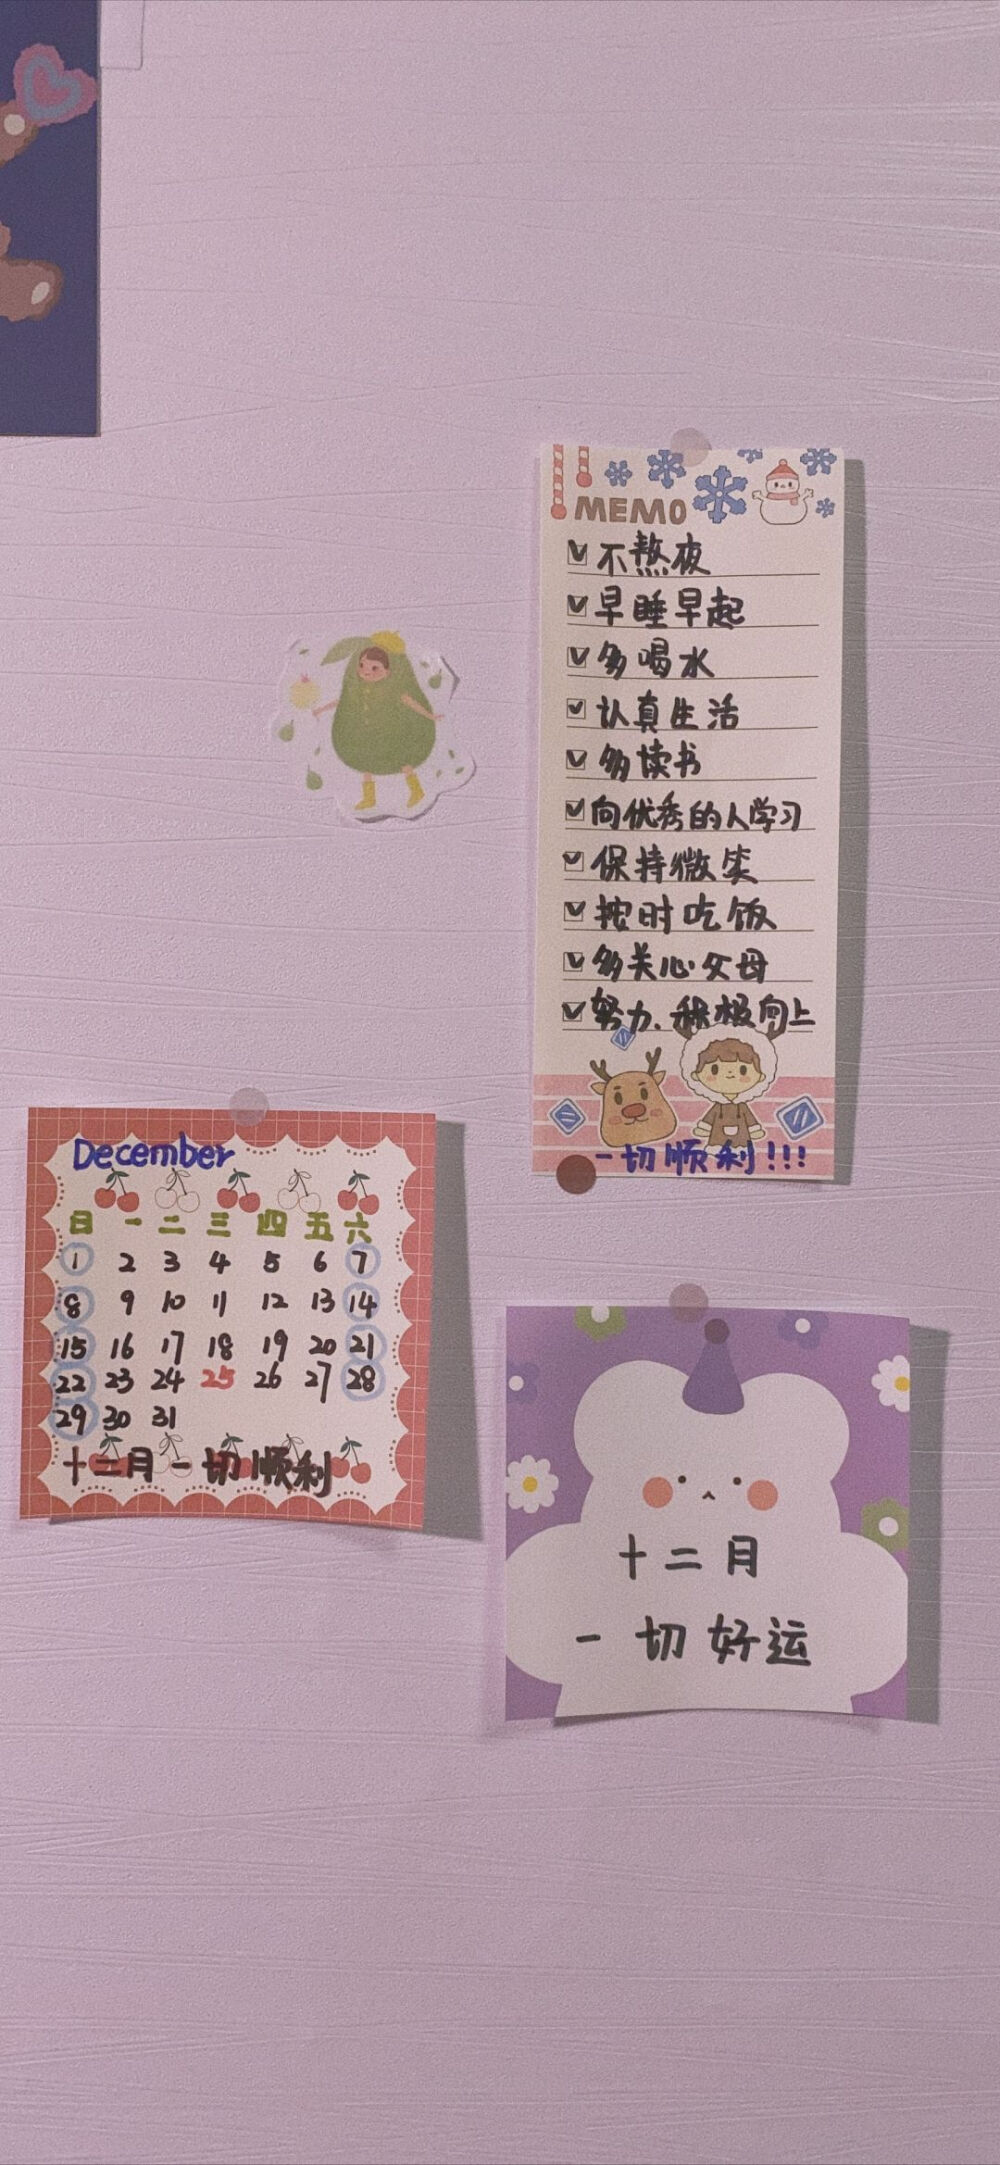 MEMO
不熬夜
早睡早起
多喝水
认真生活
多读书
向优秀的人学习
保持微笑
按时吃饭
多关心父母
努力、积极向上
一切顺利!!!
December
日 一 二 三 四 五 六
1 2 3 4 5 6 7
8 9 10 11 12 13 14
15 16 17 18 19 20 21
22 23 24 25 26 27 28
29 30 31
十二月一切顺利
十二月
一切好运